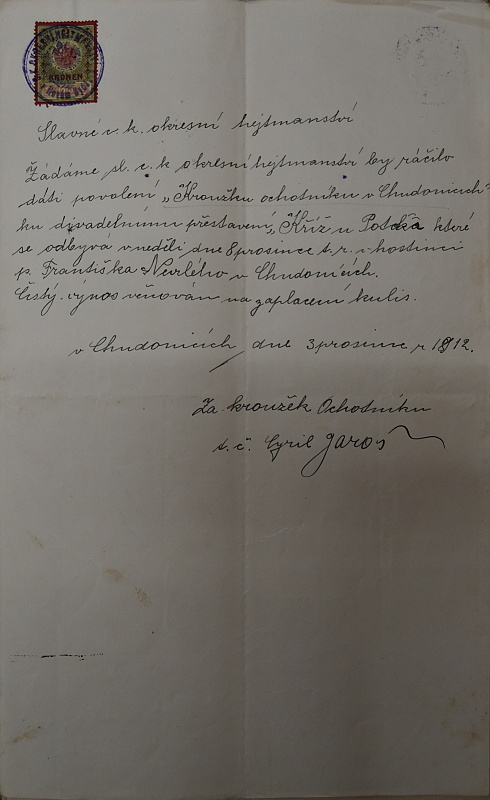 KRONEN
Slavné c. k. okresní hejtmanství
Žádáme sl. c. k. okresní hejtmanství by ráčilo
dáti povolení „Kroužku ochotníku v Chudonicích"
ku divadelnímu přestavení „Kříž u Potoka které
se odbyva v neděli dne 8 prosince t. r. v hostinci
p. Františka Nevrlého v Chudonicích.
Čistý výnos věnován na zaplacení kulis.
v Chudonicích dne 3 prosince r 1912.
Za kroužek Ochotníku
t. č. Cyril Jaroš